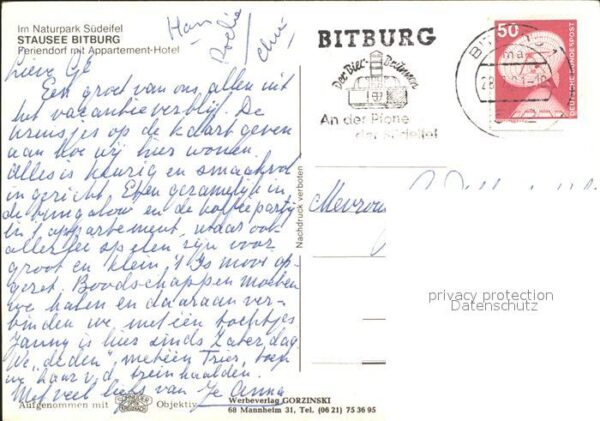 Im Naturpark Südeifel
STAUSEE BITBURG
Feriendorf mit Appartement-Hotel
Lieve
Een groet van ons allen uit
het vacantieverblijf. De
kruisjes op de kaart geven
aan hoe wij hier wonen
alles is keurig en smaakvol
ingericht. Eten gezamelijk in
de bungalow en de koffiepartij
in 't appartement, waar ook
allerlei spelen zijn voor
groot en klein, 't Is mooi op-
gezet. Boodschappen moeten
we halen en daaraan ver-
binden we met een tochtje
is hier sinds Zaterdag
We "deden" meteen Trier, toen
we haar v.d. trein haalden.
Met veel liefs van Anna
Aufgenommen mit Objektiv
BITBURG
Der Bier-Brunnen
An der Pforte
der Südeifel
50
DEUTSCHE BUNDESPOST
Mevrouw
Nachdruck verboten
privacy protection
Datenschutz
Werbeverlag GORZINSKI
68 Mannheim 31, Tel. (06 21) 75 36 95